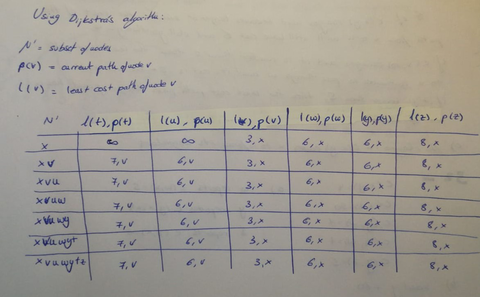 Using Dijkstra's algorithm:
N' = subset of nodes
p(v) = current path of node v
l(v) = least cost path of node v
N' l(t), p(t) l(u), p(u) l(v), p(v) l(w), p(w) l(y), p(y) l(z), p(z)
x ∞ ∞ 3, x 6, x 6, x 8, x
xv 7, v 6, v 3, x 6, x 6, x 8, x
xvu 7, v 6, v 3, x 6, x 6, x 8, x
xvuw 7, v 6, v 3, x 6, x 6, x 8, x
xvuwy 7, v 6, v 3, x 6, x 6, x 8, x
xvuwyt 7, v 6, v 3, x 6, x 6, x 8, x
xvuwytz 7, v 6, v 3, x 6, x 6, x 8, x